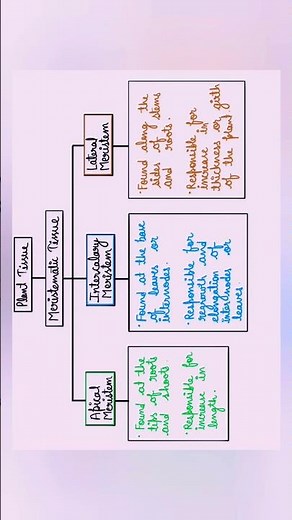 Plant Tissue
Meristematic Tissue
Apical
Meristem
• Found at the
tips of roots
and shoots
• Responsible for
increase in
length.
Intercalary
Meristem
• Found at the base
of leaves or
internodes.
• Responsible for
regrowth and
elongation of
internodes or
leaves
Lateral
Meristem
• Found along the
sides of stems
and roots.
• Responsible for
increase in
thickness or girth
of the plant